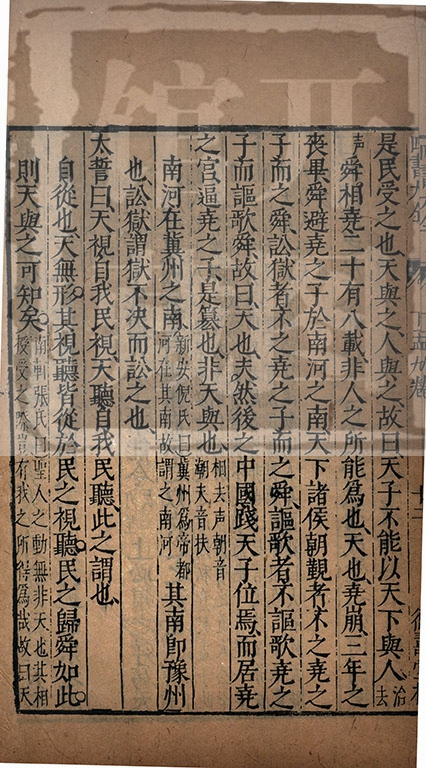 是民受之也天與之人與之故曰天子不能以天下與人治去
聲舜相堯二十有八載非人之所能為也天也堯崩三年之
喪畢舜避堯之子於南河之南天下諸侯朝覲者不之堯之
子而之舜訟獄者不之堯之子而之舜謳歌者不謳歌堯之
子而謳歌舜故曰天也夫然後之中國踐天子位焉而居堯
之宮逼堯之子是篡也非天與也相去声朝音潮夫音扶
南河在冀州之南新安倪氏曰冀州為帝都河在其南故謂之南河其南即豫州
也訟獄謂獄不決而訟之也
太誓曰天視自我民視天聽自我民聽此之謂也
自從也天無形其視聽皆從於民之視聽民之歸舜如此
則天與之可知矣南軒張氏曰聖人之動無非天也其相授受之際豈有我之所得為哉故曰天